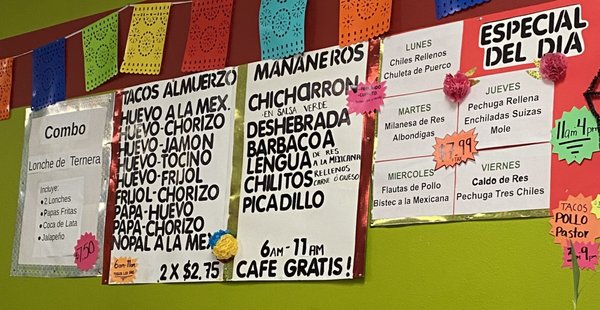 Combo
Lonche de Ternera
Incluye:
• 2 Lonches
• Papas Fritas
• Coca de Lata
• Jalapeño
$7.50
TACOS ALMUERZO
HUEVO A LA MEX.
HUEVO-CHORIZO
HUEVO-JAMON
HUEVO-TOCINO
HUEVO-FRIJOL
FRIJOL-CHORIZO
PAPA-HUEVO
PAPA-CHORIZO
NOPAL A LA MEX.
6am-11am
2 X $2.75
MAÑANEROS
CHICHARRON
EN SALSA VERDE
DESHEBRADA
BARBACOA
LENGUA DE RES A LA MEXICANA
CHILITOS RELLENOS CARNE O QUESO
PICADILLO
6AM-11AM
CAFE GRATIS!
ESPECIAL
DEL DIA
LUNES
Chiles Rellenos
Chuleta de Puerco
MARTES
Milanesa de Res
Albondigas
MIERCOLES
Flautas de Pollo
Bistec a la Mexicana
JUEVES
Pechuga Rellena
Enchiladas Suizas
Mole
VIERNES
Caldo de Res
Pechuga Tres Chiles
$7.99
11am 4pm
TACOS
POLLO
Pastor
9pm